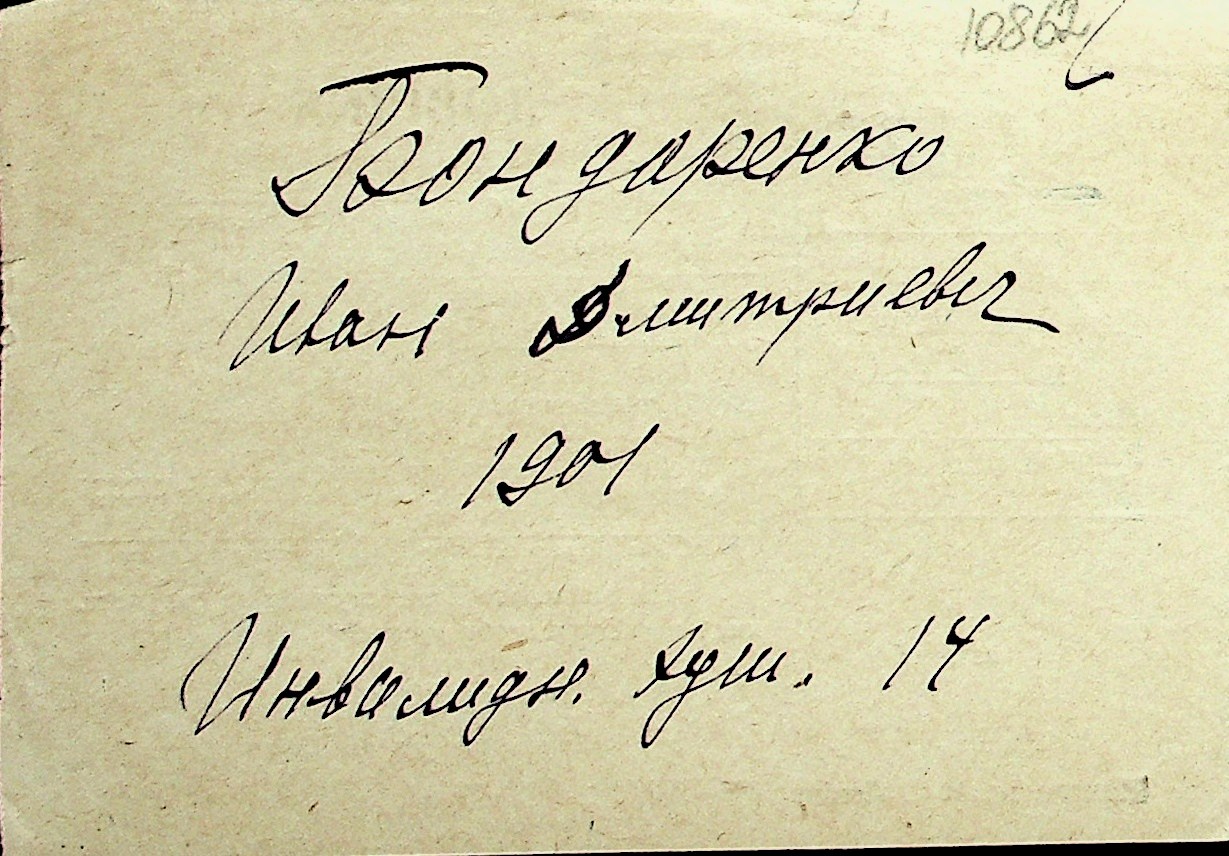 10862
Бондаренко
Иван Дмитриевич
1901
Инвалидн. туп. 14